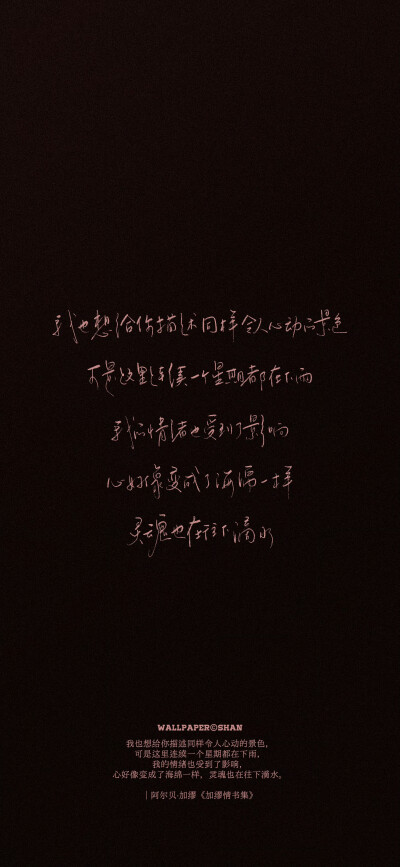 我也想给你描述同样令人心动的景色
可是这里连续一个星期都在下雨
我的情绪也受到了影响
心好像变成了海绵一样
灵魂也在往下滴水
WALLPAPER©SHAN
我也想给你描述同样令人心动的景色,
可是这里连续一个星期都在下雨,
我的情绪也受到了影响,
心好像变成了海绵一样，灵魂也在往下滴水。
｜阿尔贝·加缪《加缪情书集》